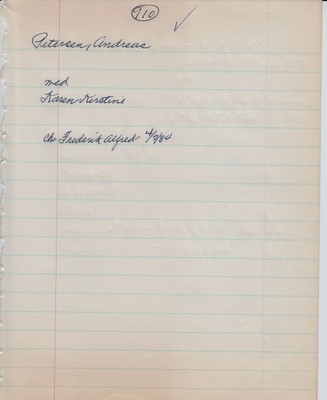 910
Petersen, Andreas
med
Karen Kirstine
ch Frederik Alfred 4/9/84